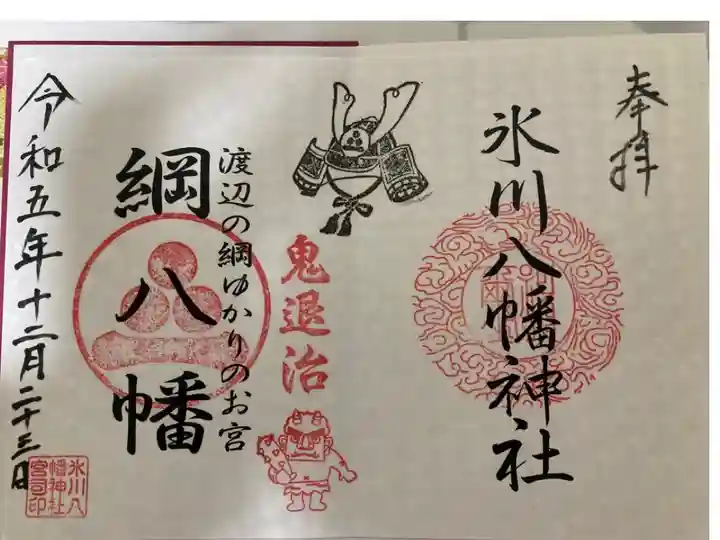 奉拝
氷川八幡神社
鬼退治
渡辺の綱ゆかりのお宮
綱八幡
令和五年十二月二十三日
氷川八
幡神社
宮司印